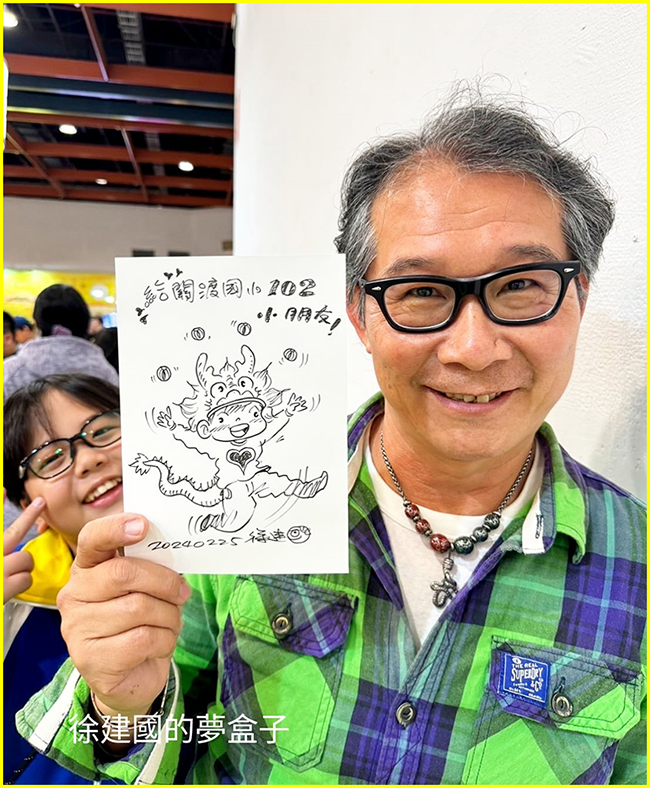 給關渡國小102
小朋友!
20240225 徐建國
THE REAL
SUPERDRY
& Co
徐建國的夢盒子